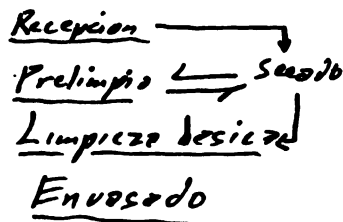 Recepcion
Prelimpio Secado
Limpieza basica
Envasado